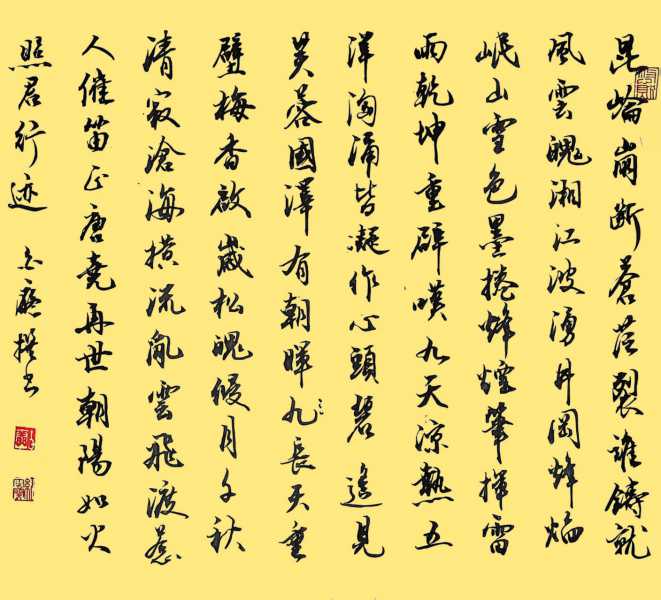 昆崘崗断蒼茫裂誰鑄就
風雲魄湘江波湧井岡烽焰
岷山雪色墨捲烽煙筆揮雷
雨乾坤重辟嘆九天涼熱五
洋洶涌皆凝作心頭碧遙見
芙蓉國澤有朝暉九長天垂
壁梅香啟歲松魄縵月千秋
清寂滄海橫流亂雲飛渡惹
人催笛正唐堯再世朝陽如火
照君行迹 撰书